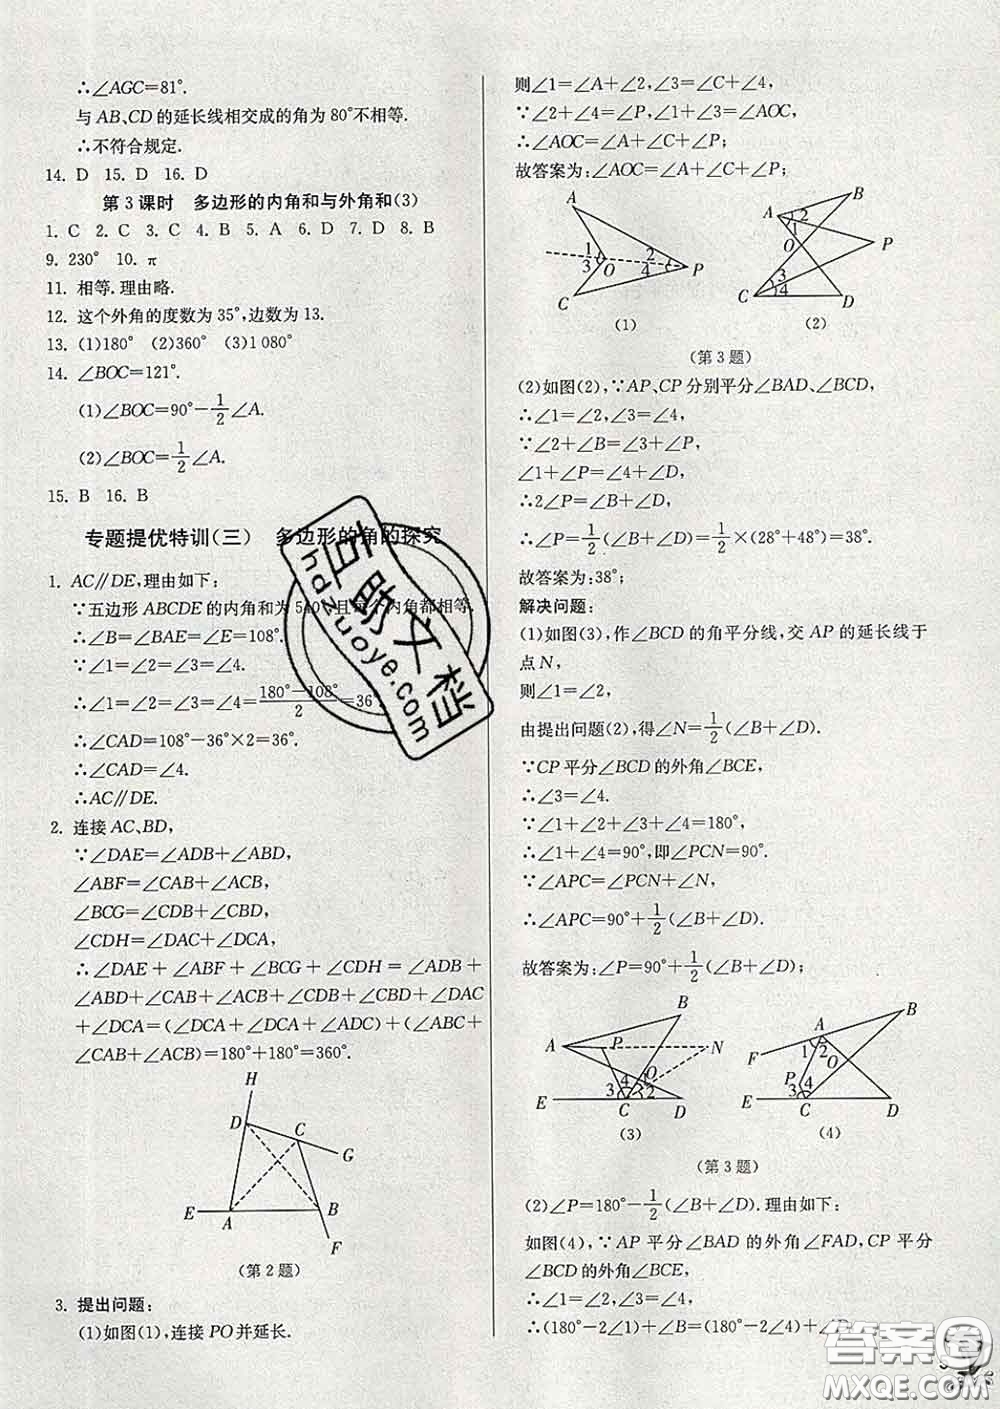 ∴∠AGC=81°.
与AB、CD的延长线相交成的角为80°不相等.
∴不符合规定.
14. D 15. D 16. D
第3课时 多边形的内角和与外角和(3)
1. C 2. C 3. C 4. B 5. A 6. D 7. D 8. B
9. 230° 10. π
11. 相等.理由略.
12. 这个外角的度数为35°,边数为13.
13. (1)180° (2)360° (3)1 080°
14. ∠BOC=121°.
(1)∠BOC=90°-1/2∠A.
(2)∠BOC=1/2∠A.
15. B 16. B
专题提优特训(三) 多边形的角的探究
1. AC∥DE,理由如下:
∵五边形ABCDE的内角和为540°,且每个内角都相等.
∴∠B=∠BAE=∠E=108°.
∵∠1=∠2=∠3=∠4.
∴∠1=∠2=∠3=∠4=(180°-108°)/2=36°
∴∠CAD=108°-36°×2=36°.
∴∠CAD=∠4.
∴AC∥DE.
2. 连接AC、BD,
∵∠DAE=∠ADB+∠ABD,
∠ABF=∠CAB+∠ACB,
∠BCG=∠CDB+∠CBD,
∠CDH=∠DAC+∠DCA,
∴∠DAE+∠ABF+∠BCG+∠CDH=∠ADB
+∠ABD+∠CAB+∠ACB+∠CDB+∠CBD+∠DAC
+∠DCA=(∠DAC+∠DCA+∠ADC)+(∠ABC+
∠CAB+∠ACB)=180°+180°=360°.
H
D
C
G
E
A
B
F
(第2题)
3. 提出问题:
(1)如图(1),连接PO并延长.
则∠1=∠A+∠2,∠3=∠C+∠4,
∵∠2+∠4=∠P,∠1+∠3=∠AOC,
∴∠AOC=∠A+∠C+∠P;
故答案为:∠AOC=∠A+∠C+∠P;
A
1
2
3
O
4
P
C
(1)
B
A
2
1
O
P
3
4
C
D
(2)
(第3题)
(2)如图(2),∵AP、CP分别平分∠BAD、∠BCD,
∴∠1=∠2,∠3=∠4,
∵∠2+∠B=∠3+∠P,
∠1+∠P=∠4+∠D,
∴2∠P=∠B+∠D,
∴∠P=1/2(∠B+∠D)=1/2×(28°+48°)=38°.
故答案为:38°;
解决问题:
(1)如图(3),作∠BCD的角平分线,交AP的延长线于
点N,
则∠1=∠2,
由提出问题(2),得∠N=1/2(∠B+∠D).
∵CP平分∠BCD的外角∠BCE,
∴∠3=∠4.
∵∠1+∠2+∠3+∠4=180°,
∴∠1+∠4=90°,即∠PCN=90°.
∵∠APC=∠PCN+∠N,
∴∠APC=90°+1/2(∠B+∠D).
故答案为:∠P=90°+1/2(∠B+∠D);
B
A
P
N
O
3
4
1
2
E
C
D
(3)
B
A
F
1
2
O
P
3
4
E
C
D
(4)
(第3题)
(2)∠P=180°-1/2(∠B+∠D).理由如下:
如图(4),∵AP平分∠BAD的外角∠FAD,CP平分
∠BCD的外角∠BCE,
∴∠1=∠2,∠3=∠4,
∴(180°-2∠1)+∠B=(180°-2∠4)+∠D,
互助文档
hdzuoye.com
答案圈
MXQE.COM